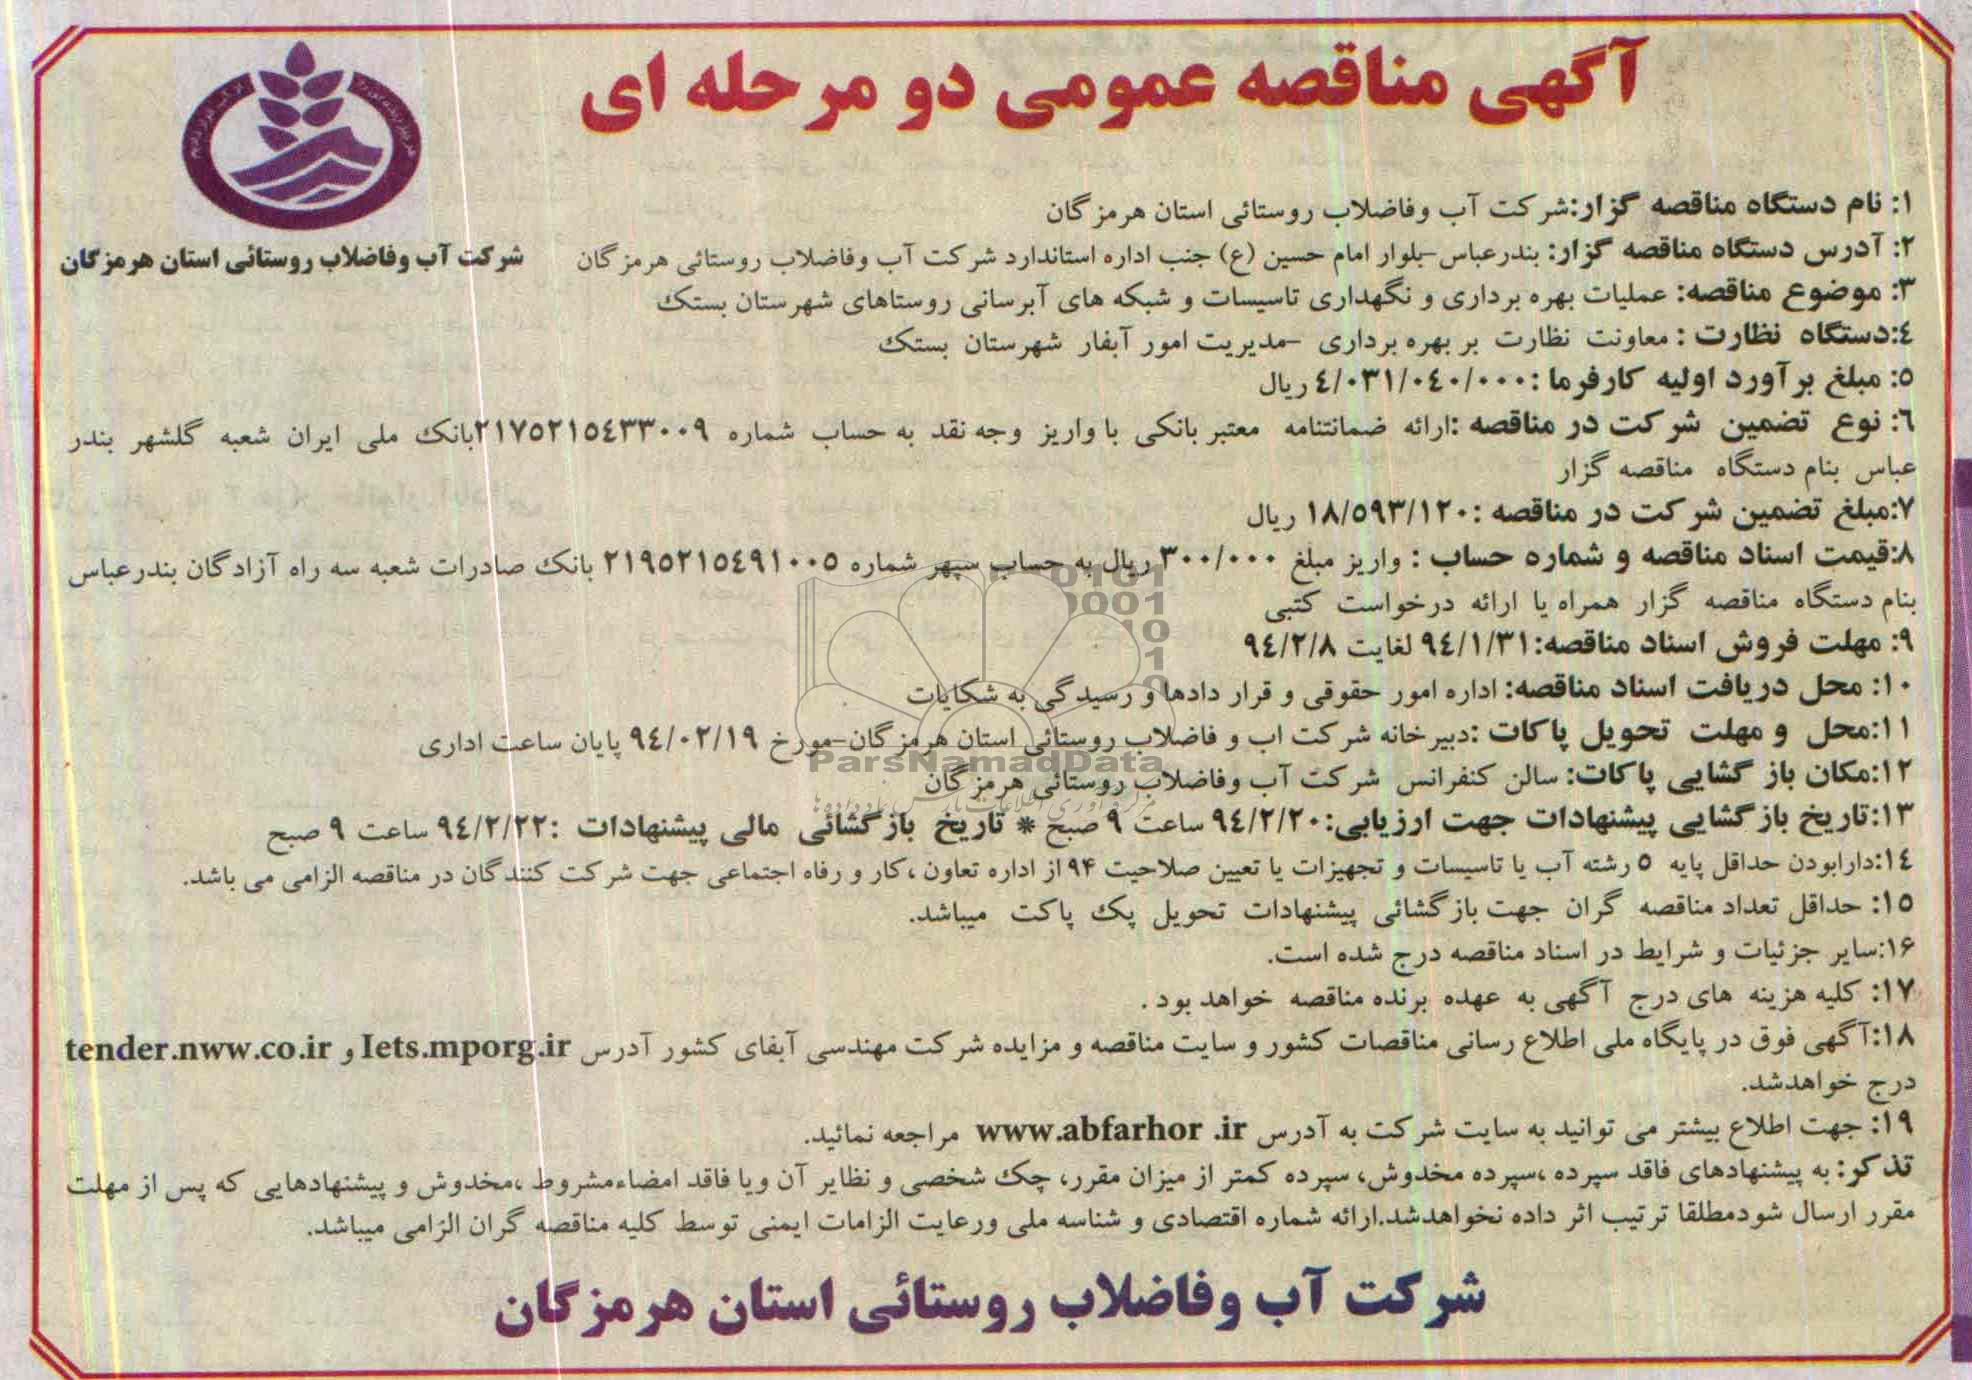 آگهی مناقصه عمومی دو مرحله ای
شرکت آب وفاضلاب روستائی استان هرمزگان
۱: نام دستگاه مناقصه گزار:شرکت آب وفاضلاب روستائی استان هرمزگان
۲: آدرس دستگاه مناقصه گزار: بندرعباس-بلوار امام حسین (ع) جنب اداره استاندارد شرکت آب وفاضلاب روستائی هرمزگان
۳: موضوع مناقصه: عملیات بهره برداری و نگهداری تاسیسات و شبکه های آبرسانی روستاهای شهرستان بستک
٤:دستگاه نظارت : معاونت نظارت بر بهره برداری -مدیریت امور آبفار شهرستان بستک
٥: مبلغ برآورد اولیه کارفرما :٤/۰۳۱/۰٤۰/۰۰۰ ریال
٦: نوع تضمین شرکت در مناقصه :ارائه ضمانتنامه معتبر بانکی با واریز وجه نقد به حساب شماره ۲۱۷٥۲۱٥٤۳۳۰۰۹بانک ملی ایران شعبه گلشهر بندر
عباس بنام دستگاه مناقصه گزار
۷:مبلغ تضمین شرکت در مناقصه :۱۸/٥۹۳/۱۲۰ ریال
۸:قیمت اسناد مناقصه و شماره حساب : واریز مبلغ ۳۰۰/۰۰۰ ریال به حساب سپهر شماره ۲۱۹٥۲۱٥٤۹۱۰۰٥ بانک صادرات شعبه سه راه آزادگان بندرعباس
بنام دستگاه مناقصه گزار همراه یا ارائه درخواست کتبی
۹: مهلت فروش اسناد مناقصه:۹٤/۱/۳۱ لغایت ۹٤/۲/۸
۱۰: محل دریافت اسناد مناقصه: اداره امور حقوقی و قرار دادها و رسیدگی به شکایات
۱۱:محل و مهلت تحویل پاکات :دبیرخانه شرکت اب و فاضلاب روستائی استان هرمزگان-مورخ ۹٤/۰۲/۱۹ پایان ساعت اداری
ParsNamadData
۱۲:مکان باز گشایی پاکات: سالن کنفرانس شرکت آب وفاضلاب روستائی هرمزگان
۱۳:تاریخ بازگشایی پیشنهادات جهت ارزیابی:۹٤/۲/۲۰ ساعت ۹ صبح * تاریخ بازگشائی مالی پیشنهادات :۹٤/۲/۲۲ ساعت ۹ صبح
۱٤:دارابودن حداقل پایه ٥ رشته آب یا تاسیسات و تجهیزات یا تعیین صلاحیت ۹۴ از اداره تعاون ،کار و رفاه اجتماعی جهت شرکت کنندگان در مناقصه الزامی می باشد.
۱٥: حداقل تعداد مناقصه گران جهت بازگشائی پیشنهادات تحویل پک پاکت میباشد.
۱۶:سایر جزئیات و شرایط در اسناد مناقصه درج شده است.
۱۷: کلیه هزینه های درج آگهی به عهده برنده مناقصه خواهد بود .
۱۸:آگهی فوق در پایگاه ملی اطلاع رسانی مناقصات کشور و سایت مناقصه و مزایده شرکت مهندسی آبفای کشور آدرس Iets.mporg.ir و tender.nww.co.ir
درج خواهدشد.
۱۹: جهت اطلاع بیشتر می توانید به سایت شرکت به آدرس www.abfarhor .ir مراجعه نمائید.
تذکر: به پیشنهادهای فاقد سپرده ،سپرده مخدوش، سپرده کمتر از میزان مقرر، چک شخصی و نظایر آن ویا فاقد امضاءمشروط ،مخدوش و پیشنهادهایی که پس از مهلت
مقرر ارسال شودمطلقا ترتیب اثر داده نخواهدشد.ارائه شماره اقتصادی و شناسه ملی ورعایت الزامات ایمنی توسط کلیه مناقصه گران الزامی میباشد.
شرکت آب وفاضلاب روستائی استان هرمزگان